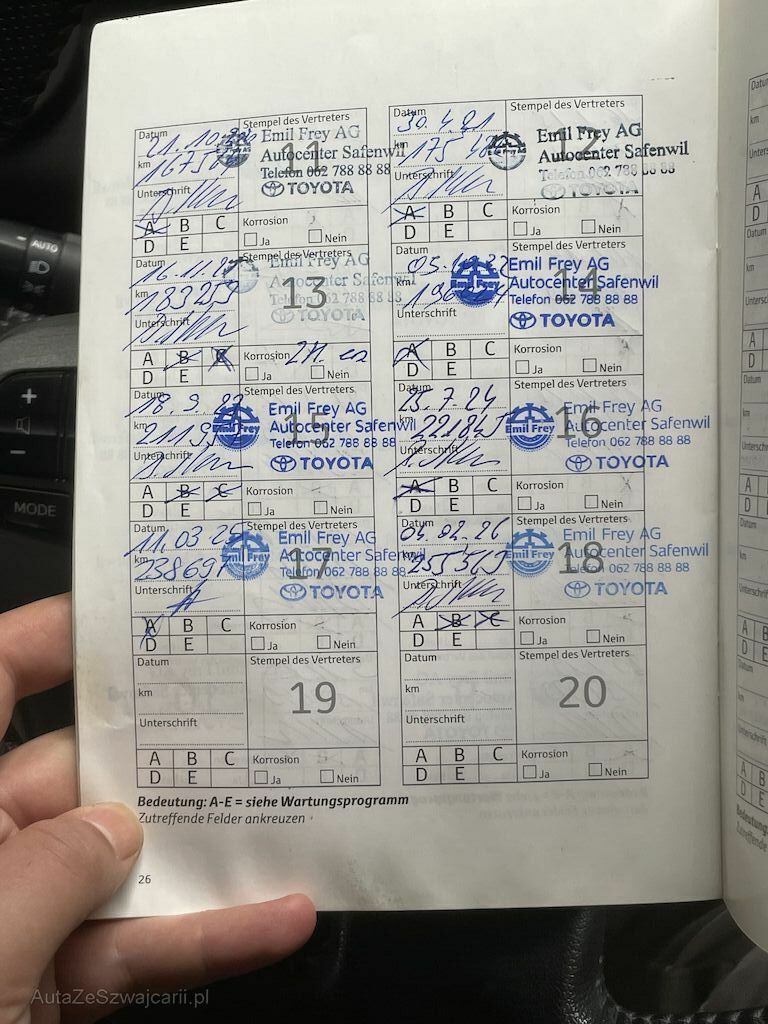 Datum
Stempel des Vertreters
21.10.
km
1675
Unterschrift
11
Emil Frey AG
Autocenter Safenwil
Telefon 062 788 88 88
TOYOTA
A B C
D E
Korrosion
Ja Nein
Datum
Stempel des Vertreters
30.4.21
km
175
Unterschrift
12
Emil Frey AG
Autocenter Safenwil
Telefon 062 788 88 88
TOYOTA
A B C
D E
Korrosion
Ja Nein
Datum
Stempel des Vertreters
16.11.2
km
183253
Unterschrift
13
Emil Frey AG
Autocenter Safenwil
Telefon 062 788 88
TOYOTA
A B C
D E
Korrosion
Ja Nein
Datum
Stempel des Vertreters
km
Unterschrift
14
Emil Frey
Emil Frey AG
Autocenter Safenwil
Telefon 062 788 88 88
TOYOTA
A B C
D E
Korrosion
Ja Nein
Datum
Stempel des Vertreters
18.9.
km
Unterschrift
15
Emil Frey
Emil Frey AG
Autocenter Safenwil
Telefon 062 788 88 88
TOYOTA
A B C
D E
Korrosion
Ja Nein
Datum
Stempel des Vertreters
25.7.24
km
221845
Unterschrift
16
Emil Frey
Emil Frey AG
Autocenter Safenwil
Telefon 062 788 88 88
TOYOTA
A B C
D E
Korrosion
Ja Nein
Datum
Stempel des Vertreters
11.03 25
km
238697
Unterschrift
17
Emil Frey
Emil Frey AG
Autocenter Safenwil
Telefon 062 788 88 88
TOYOTA
A B C
D E
Korrosion
Ja Nein
Datum
Stempel des Vertreters
04.02.26
km
255565
Unterschrift
18
Emil Frey
Emil Frey AG
Autocenter Safenwil
Telefon 062 788 88 88
TOYOTA
A B C
D E
Korrosion
Ja Nein
Datum
Stempel des Vertreters
km
Unterschrift
19
A B C
D E
Korrosion
Ja Nein
Datum
Stempel des Vertreters
km
Unterschrift
20
A B C
D E
Korrosion
Ja Nein
Bedeutung: A-E = siehe Wartungsprogramm
Zutreffende Felder ankreuzen
26
AUTO
MODE
AutaZeSzwajcarii.pl